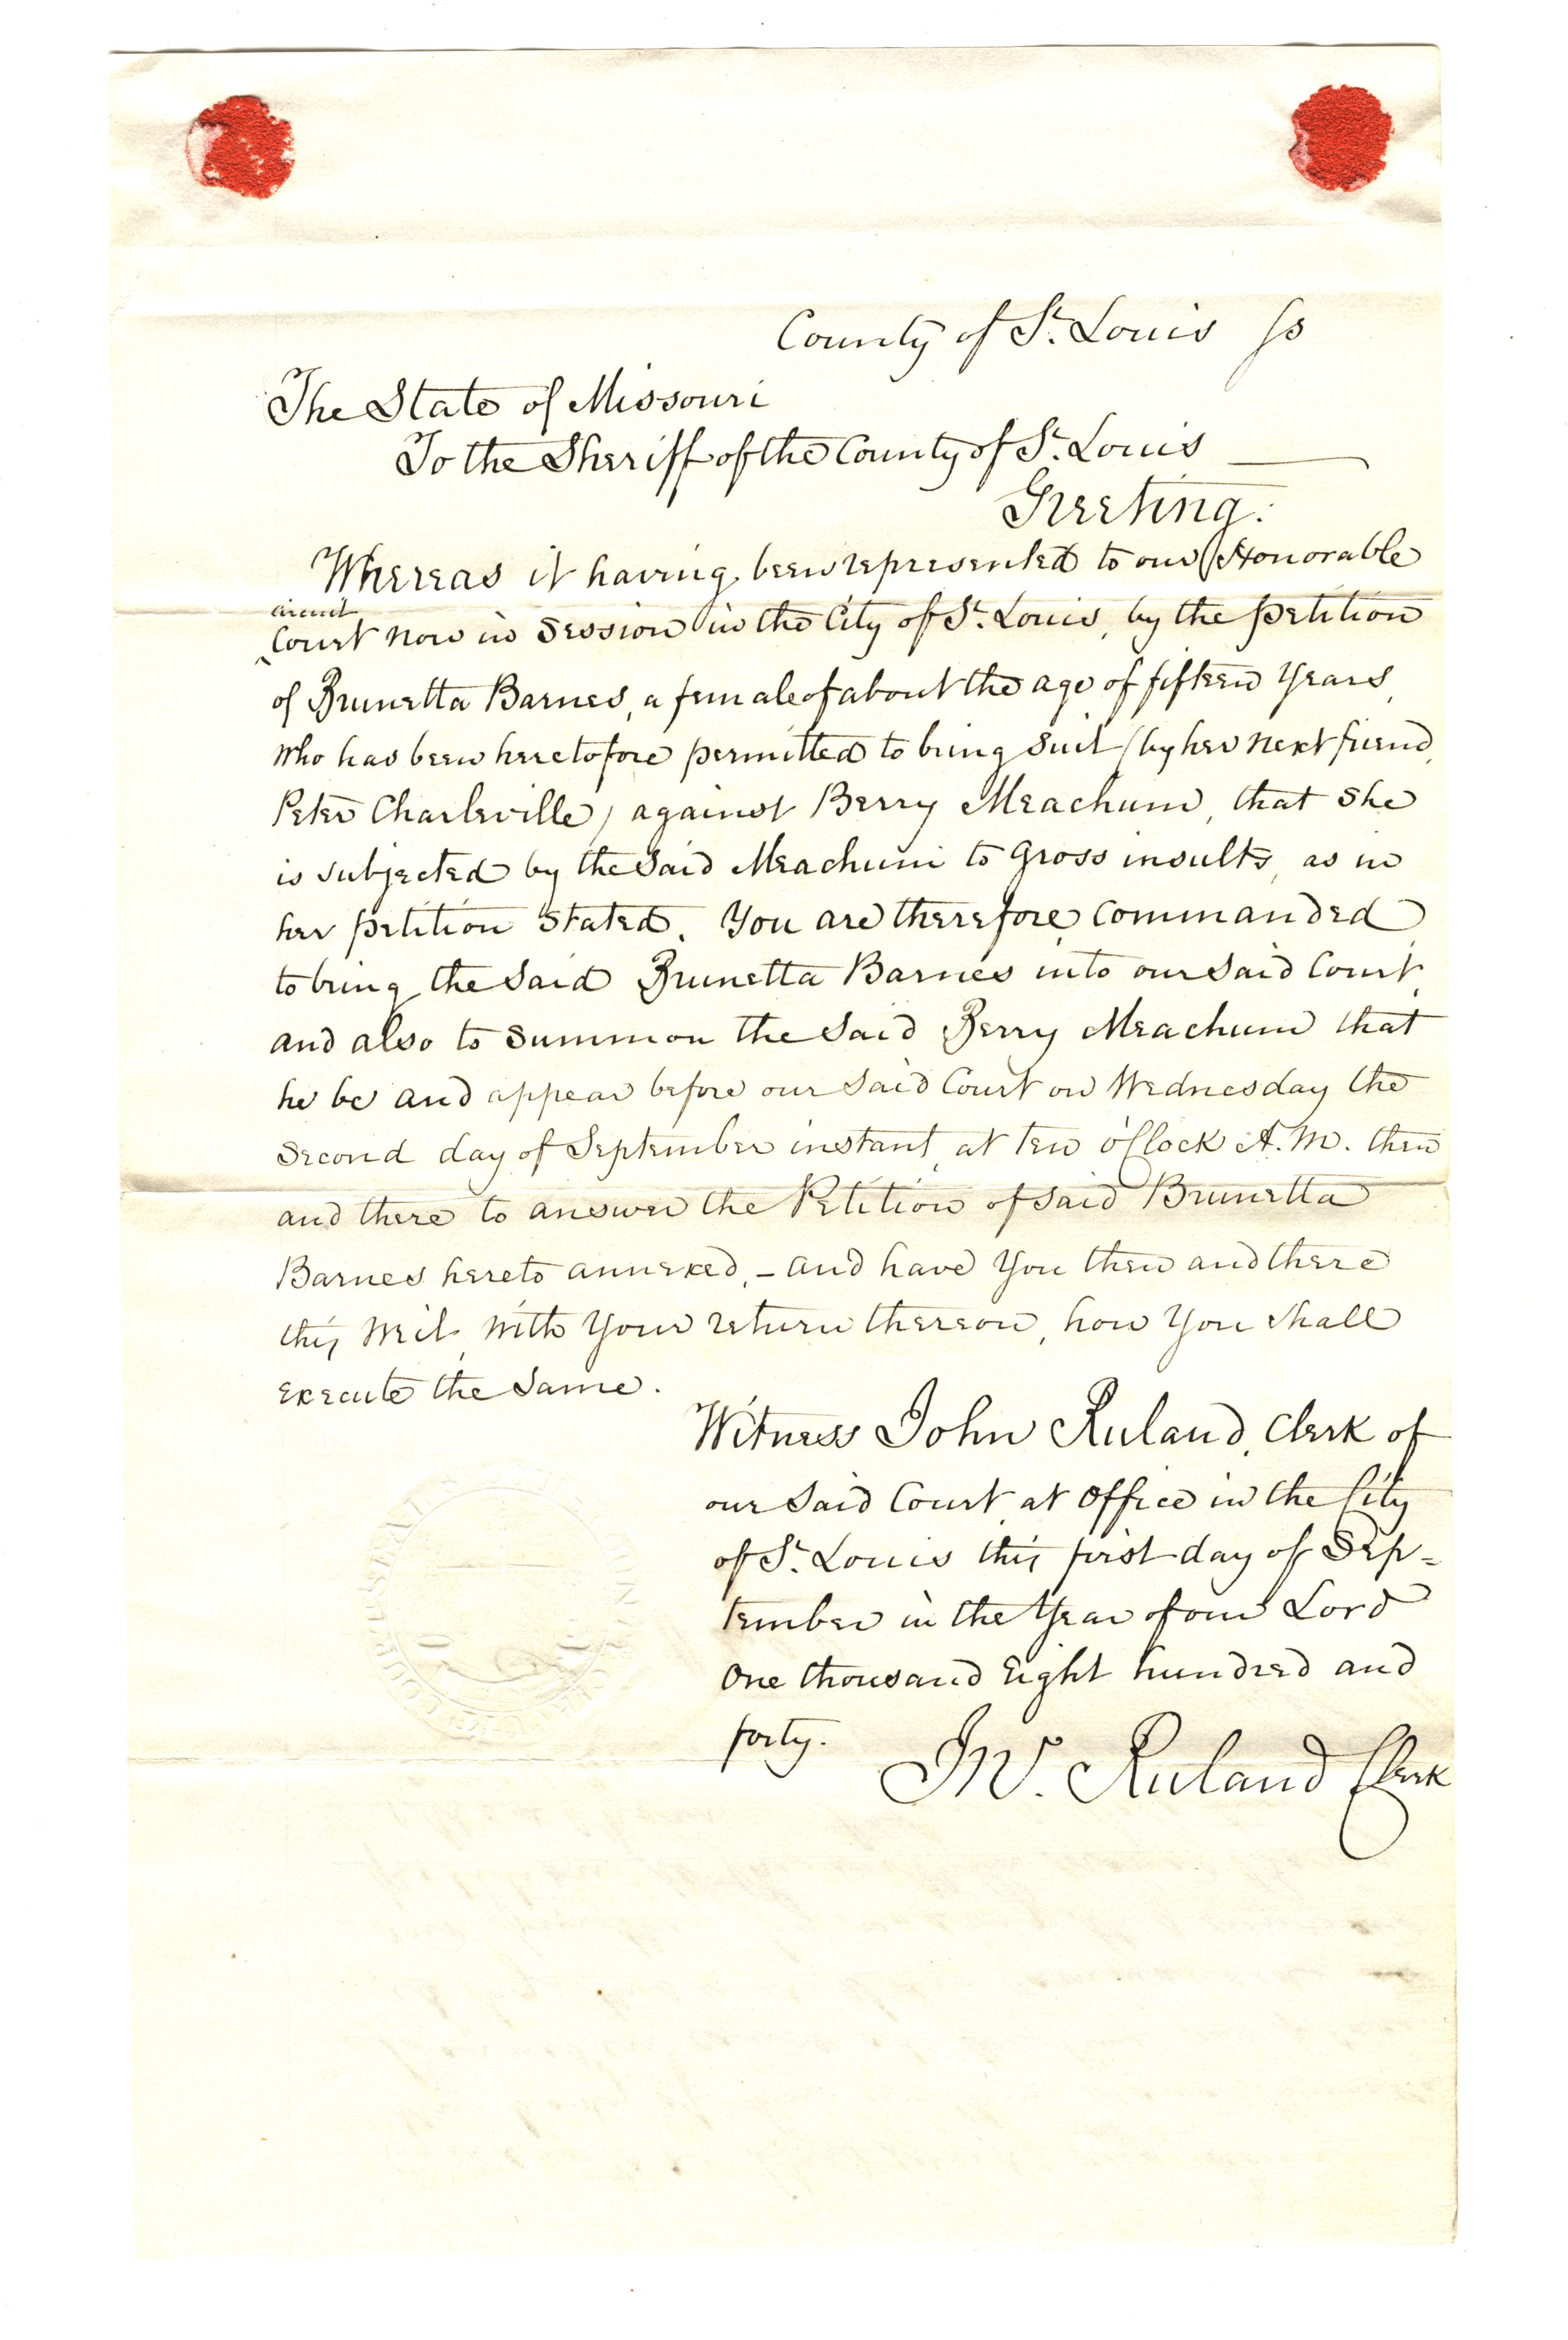 County of St. Louis ss
The State of Missouri
To the Sheriff of the County of St. Louis
Greeting:
Whereas it having been represented to our Honorable
circuit
Court now in Session in the City of St. Louis, by the petition
of Brunetta Barnes, a female of about the age of fifteen Years,
who has been heretofore permitted to bring Suit (by her next friend,
Peter Charleville) against Berry Meachum, that She
is subjected by the Said Meachum to gross insults, as in
her petition Stated. You are therefore commanded
to bring the Said Brunetta Barnes into our Said Court,
and also to Summon the Said Berry Meachum that
he be and appear before our Said Court on Wednesday the
Second day of September instant, at ten o'Clock A.M. then
and there to answer the Petition of Said Brunetta
Barnes hereto annexed, - and have You then and there
this Writ, with Your return thereon, how You Shall
execute the Same.
Witness John Ruland, Clerk of
our Said Court, at office in the City
of St. Louis this first day of Sep-
tember in the Year of our Lord
One thousand Eight hundred and
forty.
Jno. Ruland Clerk